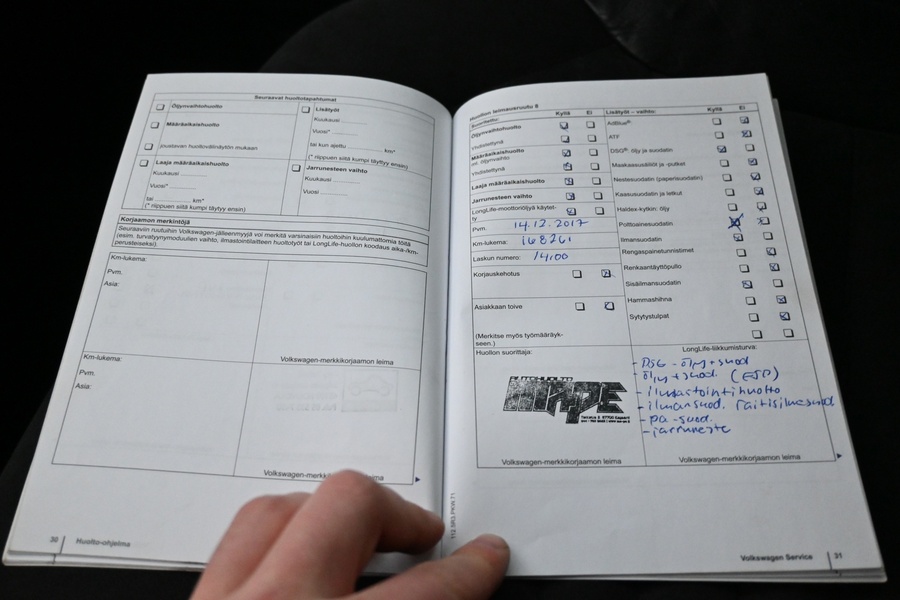 Seuraavat huoltotapahtumat
Öljynvaihtohuolto
Määräaikaishuolto
joustavan huoltovälinäytön mukaan
Lisätyöt
Kuukausi
Vuosi*
tai kun ajettu km*
(* riippuen siitä kumpi täyttyy ensin)
Laaja määräaikaishuolto
Kuukausi
Vuosi*
tai km*
(* riippuen siitä kumpi täyttyy ensin)
Jarrunesteen vaihto
Kuukausi
Vuosi
Korjaamon merkintöjä
Seuraaviin ruutuihin Volkswagen-jälleenmyyjä voi merkitä varsinaisiin huoltoihin kuulumattomia töitä
(esim. turvatyynymoduulien vaihto, ilmastointilaitteen huoltotyöt tai LongLife-huollon koodaus aika-/km-
perusteiseksi).
Km-lukema:
Pvm.
Asia:
Volkswagen-merkkikorjaamon leima
Km-lukema:
Pvm.
Asia:
Volkswagen-merkkikorjaamon leima
30 Huolto-ohjelma
Huollon leimausruutu 8
Suoritettu: Kyllä Ei
Öljynvaihtohuolto
Yhdistettynä
Määräaikaishuolto
öljynvaihto
Yhdistettynä
Laaja määräaikaishuolto
Jarrunesteen vaihto
LongLife-moottoriöljyä käytet-
ty
Pvm. 14.12.2017
Km-lukema: 168261
Laskun numero: 14100
Korjauskehotus
Asiakkaan toive
(Merkitse myös työmääräyk-
seen.)
Lisätyöt – vaihto: Kyllä Ei
AdBlue®
ATF
DSG®: öljy ja suodatin
Maakaasusäiliöt ja -putket
Nestesuodatin (paperisuodatin)
Kaasusuodatin ja letkut
Haldex-kytkin: öljy
Polttoainesuodatin
Ilmansuodatin
Rengaspainetunnistimet
Renkaantäyttöpullo
Sisäilmansuodatin
Hammashihna
Sytytystulpat
Huollon suorittaja:
AUTOHUOLTO
Volkswagen-merkkikorjaamon leima
LongLife-liikkumisturva:
- DSG - öljy + suod
- öljy + suod. (ESP)
- ilmastointihuolto
- ilmansuod. raitisilmasuod
- pa-suod.
- jarruneste
Volkswagen-merkkikorjaamon leima
112.5R3.PKW.71
Volkswagen Service 31